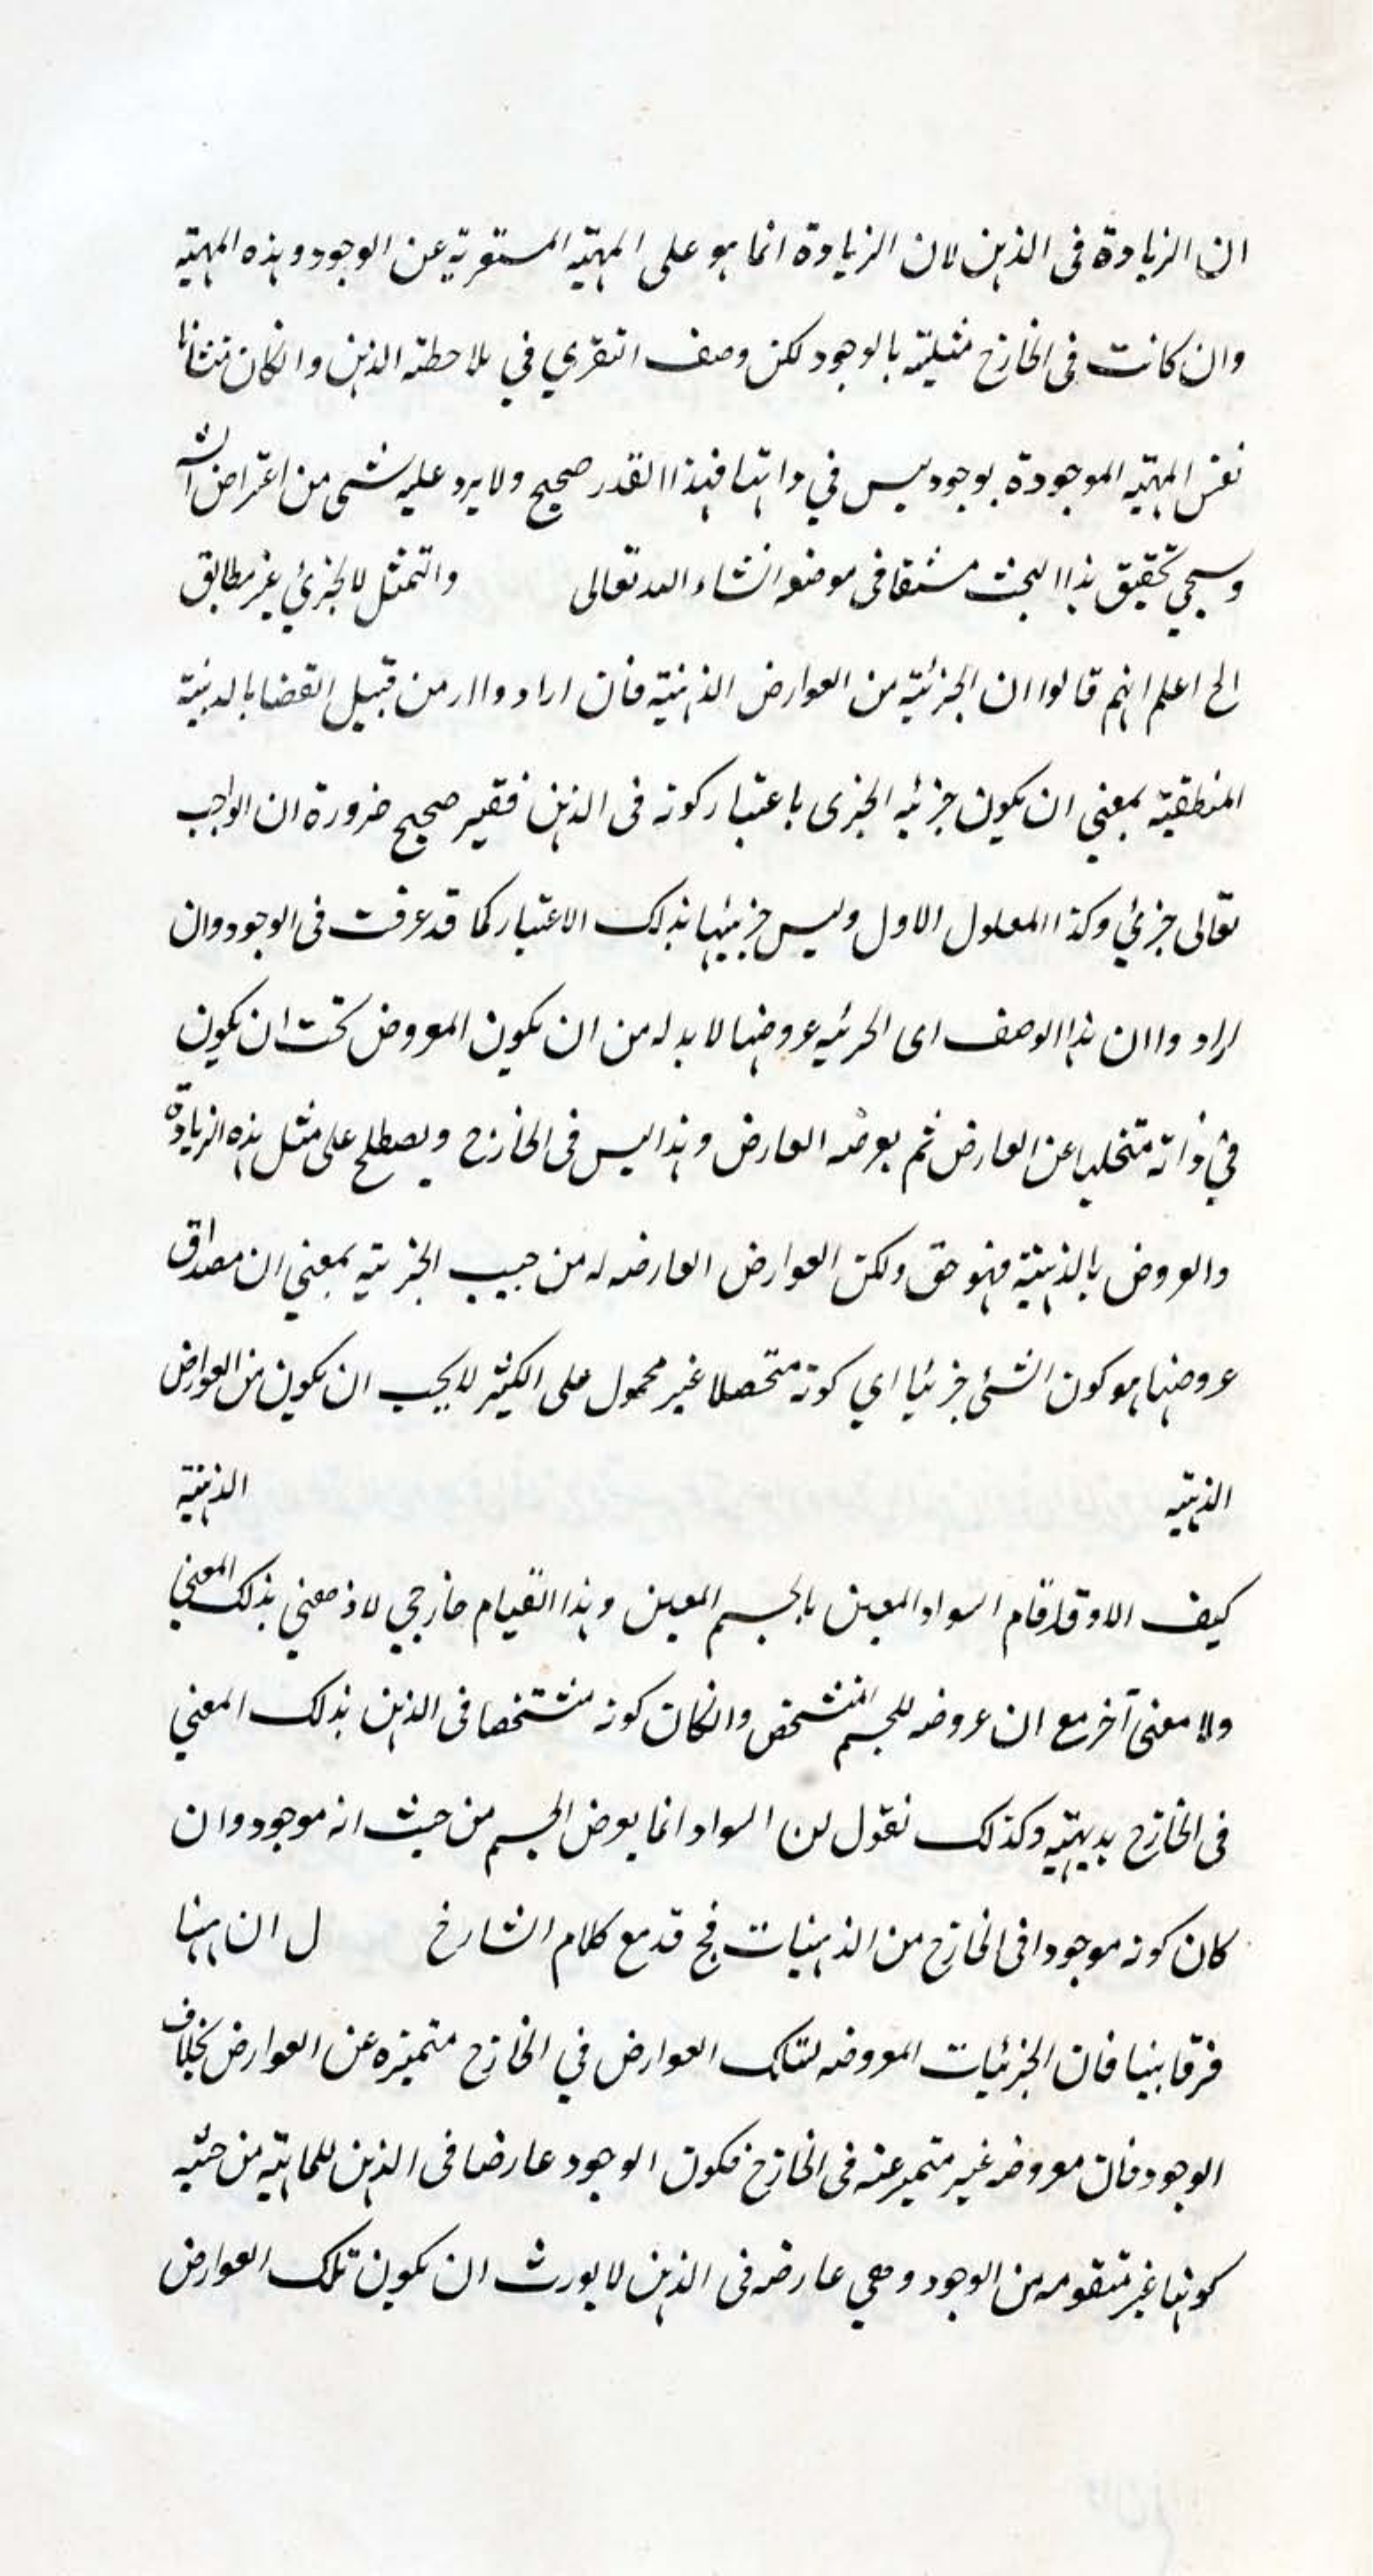 ان الزيادة فى الذهن لان الزيادة انما هو على المهية المستقرية عن الوجود وهذه المهية
وان كانت فى الخارج مثيلية بالوجود لكن وصف التقري في ملاحظة الذهن وانكان منشائا
نفس المهية الموجودة بوجود ليس في ذاتها فهذا القدر صحيح ولا يرد عليه شى من اعتراض الش
وسيجي تحقيق هذا البحث مشتقا فى موضعه انشاء الله تعالى والتمثل لالجزئي غير مطابق
الخ اعلم انهم قالوا ان الجزئية من العوارض الذهنية فان ارادوا ار من قبيل القضايا لدنية
المنطقية بمعني ان يكون جزئيه الجزى باعتبار كونه فى الذهن فقير صحيح ضرورة ان الواجب
تعالى جزئي وكذا المعلول الاول وليس جزئيتها بذلك الاعتبار كما قد عرفت فى الوجود وان
ارادوا ان هذا الوصف اى الجرئيه عروضها لا بد له من ان يكون المعروض بحت ان يكون
في ذاته متخليا عن العارض ثم يعرضه العارض وهذا ليس فى الخارج ويصطلح على مثل هذه الزيادة
والعروض بالذهنية فهو حق ولكن العوارض العارضه له من حيب الجزئيه بمعني ان مصداق
عروضها هو كون الشئى جزئيا اي كونه متحصلا غير محمول على الكثير لايجب ان يكون من العوارض
الذهنيه الذهنية
كيف الا وقد قام السواد المعين بالجسم المعين وهذا القيام خارجي لا ذهني بذلك المعني
ولا معنى آخر مع ان عروضه للجسم المتشخص وانكان كونه متشخصا فى الذهن بذلك المعني
فى الخارج بديهيه وكذلك نقول لن السواد انما يعرض الجسم من حيث انه موجود وان
كان كونه موجودا فى الخارج من الذهنيات فح قد مع كلام الشارخ ل ان ههنا
فرقا بينا فان الجزئيات المعروضه لتلك العوارض في الخارج متميزه عن العوارض بخلاف
الوجود فان معروضه غير متميز عنه فى الخارج فكون الوجود عارضا فى الذهن للماهيه من حيثيه
كونها غير متقومه من الوجود وهي عارضه فى الذهن لا يورث ان يكون تلك العوارض